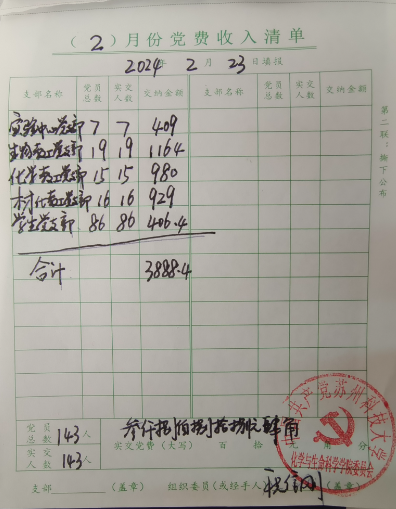 （2）月份党费收入清单
2024年 2月 23日填报
支部名称 党员总数 实交人数 交纳金额 支部名称 党员总数 实交人数 交纳金额
实验中心党支部 7 7 409
生物教工党支部 19 19 1164
化学教工党支部 15 15 980
材化教工党支部 16 16 929
学生党支部 86 86 406.4
合计 3888.4
第二联：按下公布
党员总数 143人
叁仟捌佰捌拾捌元肆角
实交人数 143人
实交党费（大写） 百 拾 角 分
中国共产党苏州科技大学
化学与生命科学学院委员会
支部（盖章） 组织委员（或经手人） （盖章）